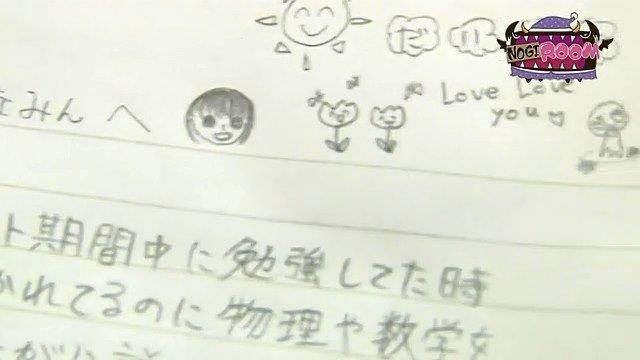 NOGI ROOM
だい
Love Love
you
みんへ
ト期間中に勉強してた時
かれてるのに物理や数学を